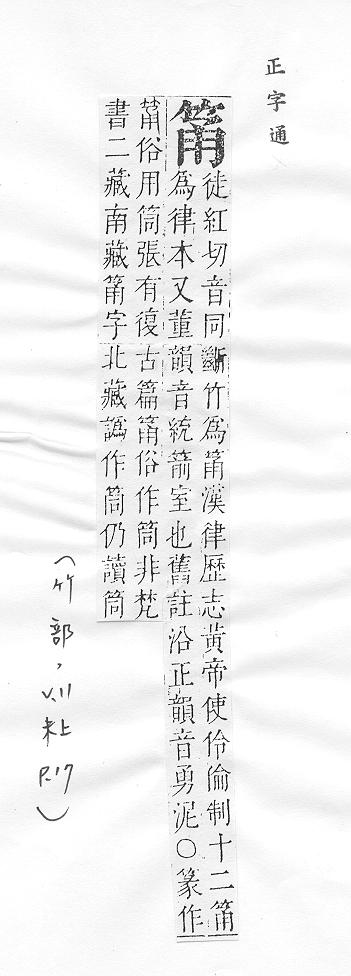 正字通
筩
徒紅切音同斷竹為筩漢律歷志黃帝使伶倫制十二筩
為律本又董韻音統箭室也舊註沿正韻音勇泥○篆作
筩俗用筒張有復古篇筩俗作筒非梵
書二藏南藏筩字北藏譌作筒仍讀筒
(竹部,V.11未上P.17)